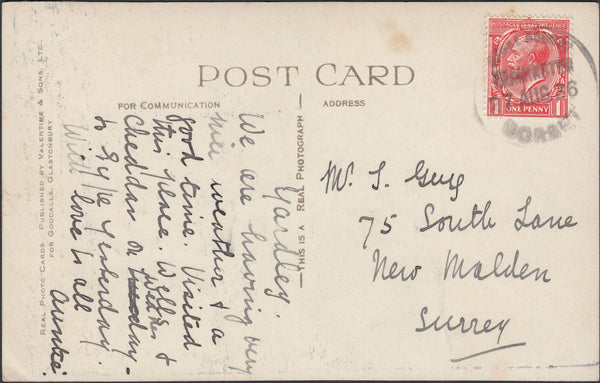 POST CARD
FOR COMMUNICATION
ADDRESS
THIS IS A REAL PHOTOGRAPH
REAL PHOTO-CARDS PUBLISHED BY VALENTINE & SONS, LTD.
FOR GOODALLS, GLASTONBURY
POSTAGE REVENUE
ONE PENNY
1 1
AUG 36
DORSET
Yardley
We are having very
nice weather & a
good time. Visited
this place. Wells &
Cheddar on Tuesday
& Lyme yesterday.
With love to all
Auntie.
Mr. S. Guy
75 South Lane
New Malden
Surrey